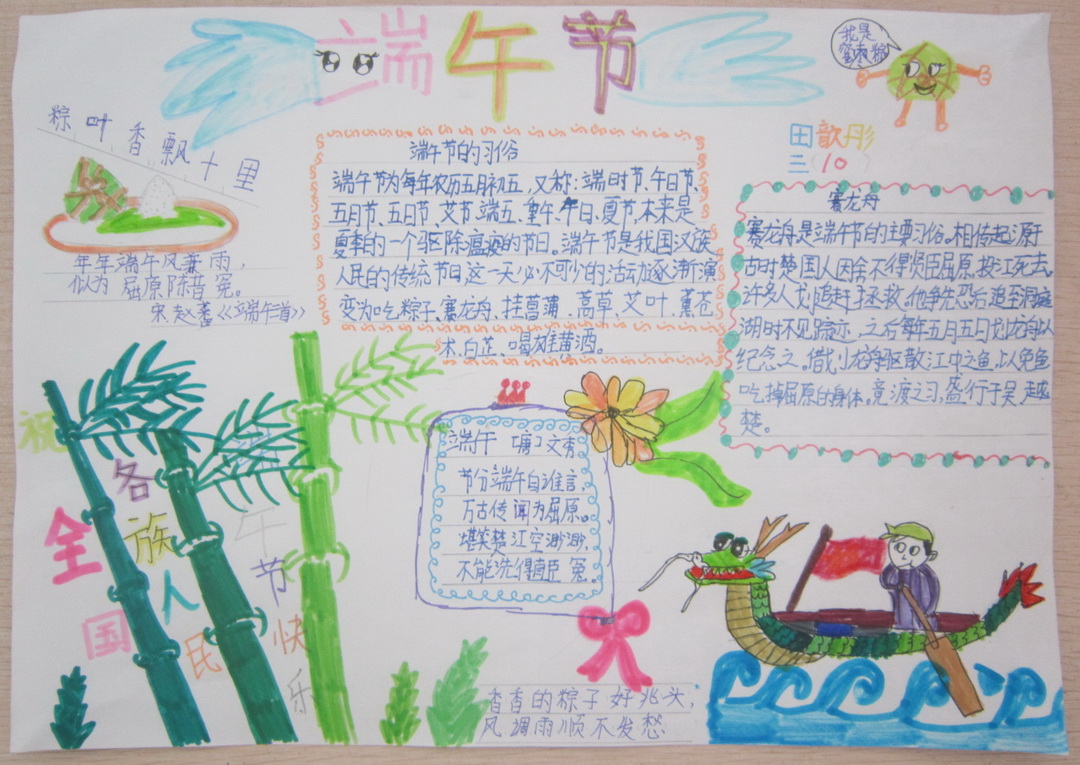 端午节
我是
蜜枣粽
田歆彤
三(10)
粽叶香飘十里
年年端午风兼雨,
似为屈原陈昔冤。
宋赵蕃《端午首》
端午节的习俗
端午节为每年农历五月初五,又称:端阳节、午日节、
五月节、五日节、艾节、端五、重午、午日、夏节,本来是
夏季的一个驱除瘟疫的节日。端午节是我国汉族
人民的传统节日这一天必不可少的活动逐渐演
变为吃粽子、赛龙舟、挂菖蒲、蒿草、艾叶、薰苍
术、白芷、喝雄黄酒。
赛龙舟
赛龙舟是端午节的主要习俗。相传起源于
古时楚国人因舍不得贤臣屈原投江死去。
许多人划追赶拯救。他争先恐后追至洞庭
湖时不见踪迹,之后每年五月五日划龙舟以
纪念之。借划龙舟驱散江中之鱼,以免鱼
吃掉屈原的身体。竞渡之习,盛行于吴越
楚。
端午 唐 文秀
节分端午自谁言,
万古传闻为屈原。
堪笑楚江空渺渺,
不能洗得直臣冤。
祝
全国
各族人民
端午节快乐
香香的粽子好兆头,
风调雨顺不发愁